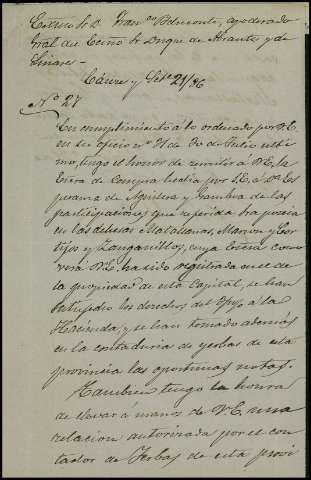 Excmo Sr D. Fran.co Belmonte, apoderado
Gral del Excmo Sr Duque de Abrantes y de
Linares -
Cáceres y Sete 21/86
No 27
En cumplimiento á lo ordenado por V.E.
en su oficio no 31 de 30 de Julio últi
mo, tengo el honor de remitir á V.E. la
Escra de compra hecha por S.E. á Da Es
 de Aguilera y Gamboa de las
participaciones que referida Sra poseia
en las dehesas Matallanas, Marron y Cor
tijos y Zanganillos, cuya Escra como
verá V.E. ha sido registrada en el de
la propiedad de esta capital, se han
satisfecho los derechos del Impto á la
Hacienda, y se han tomado además
en la contaduria de yerbas de esta
provincia las oportunas notas.
Tambien tengo la honra
de llevar á manos de V.E. una
relacion autorizada por el con
tador de Yerbas de esta provi